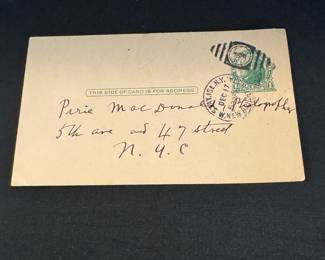 THIS SIDE OF CARD IS FOR ADDRESS
DEC 17
Pirie MacDonald Photographer
5th ave and 47 street
N. Y. C